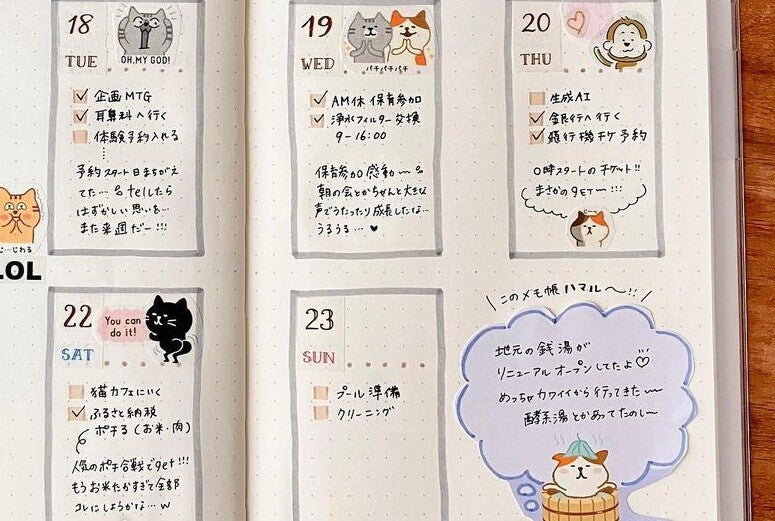 18
TUE
OH, MY GOD!
企画 MTG
耳鼻科へ行く
体験予約入れる
予約スタート日まちがえ
てた… telしたら
はずかしい思いを…
また来週だー!!!
19
WED
パチパチパチ
AM休 保育参加
浄水フィルター交換
9-16:00
保育参加感動〜
朝の会とかちゃんと大きな
声でうたったり成長したな…
うるうる…♥
20
THU
生成AI
銀行へ行く
飛行機チケ予約
0時スタートのチケット!!
まさかのGET〜!!!
じ…じわる
LOL
22
SAT
You can
do it!
猫カフェにいく
ふるさと納税
ポチる(お米・肉)
人気のポチ合戦でget!!!
もうお米たかすぎて全部
コレにしようかな…w
23
SUN
プール準備
クリーニング
\このメモ帳ハマル〜!!/
地元の銭湯が
リニューアルオープンしてたよ♡
めっちゃカワイイから行ってきた〜
酵素湯とかあってたのしー